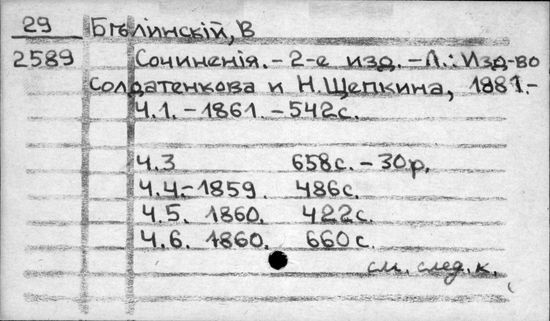 29 Бѣлинскій, В
2589 Сочиненія. - 2-е изд. - Л.: Изд-во
Солдатенкова и Н. Щепкина, 1881.-
Ч.1. - 1861. - 542с.
Ч.3 658с. - 30р.
Ч.4.- 1859. 486с.
Ч.5. 1860. 422с.
Ч.6. 1860. 660с.
см. след. к.